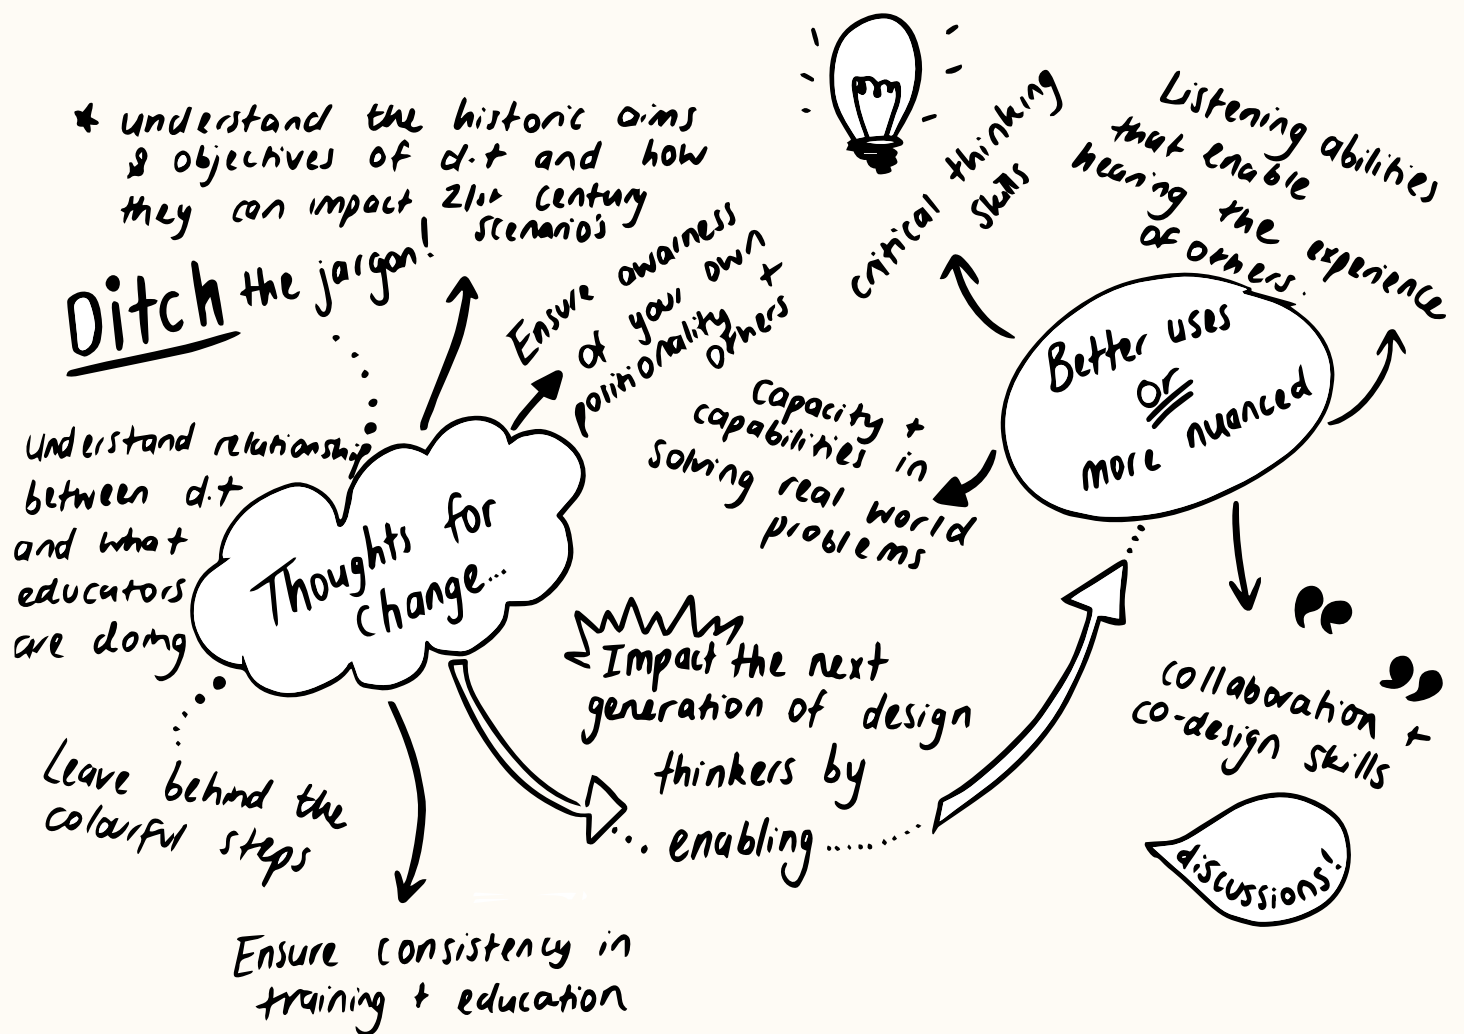 ★ understand the historic aims
& objectives of d.t and how
they can impact 21st century
scenario's
Ditch the jargon!
Ensure awarness
of your own
positionality +
others
understand relationship
between d.t
and what
educators
are doing
Thoughts for
change...
Leave behind the
colourful steps
Ensure consistency in
training + education
Impact the next
generation of design
thinkers by
enabling
Better uses
or
more nuanced
critical thinking
skills
Listening abilities
that enable
hearing the experience
of others.
Capacity +
capabilities in
solving real world
problems
collaboration +
co-design skills
discussions!